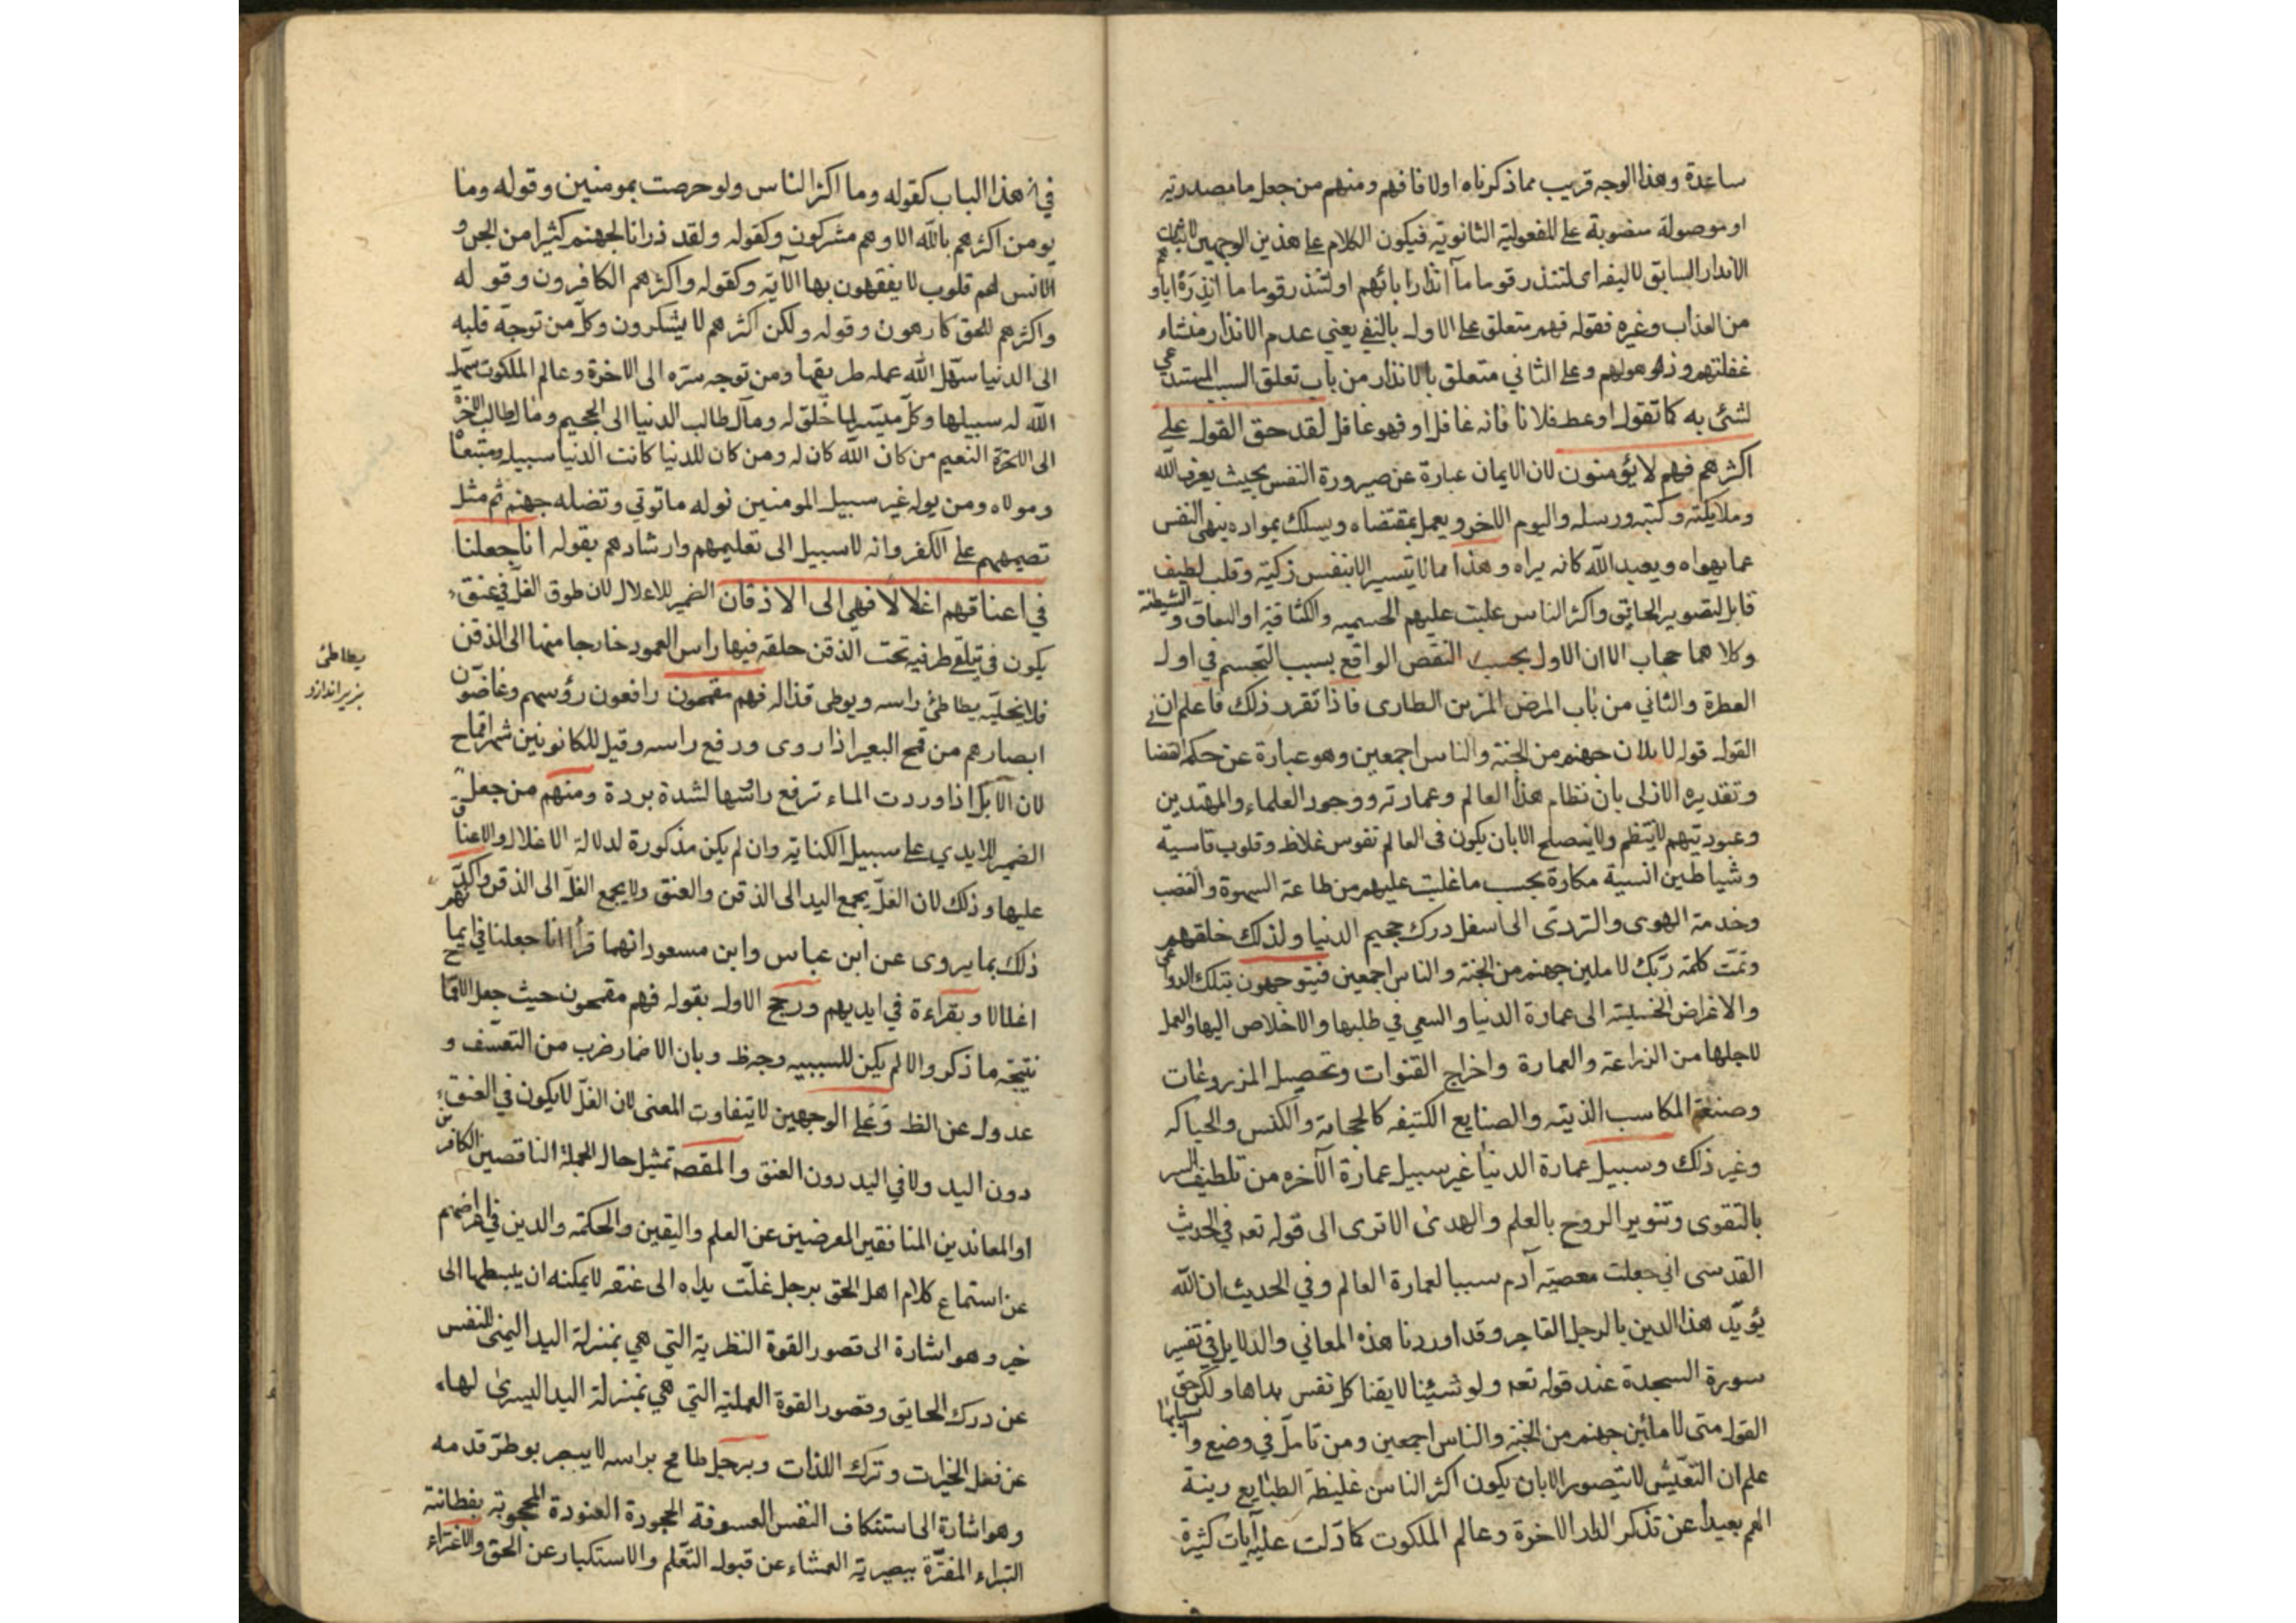 ساعدة وهذا الوجه قريب مما ذكرناه اولا فافهم ومنهم من جعل ما مصدرية
او موصولة منصوبة على المفعولية الثانوية فيكون الكلام على هذين الوجهين لاثبات
الانذار السابق لا ليفه اى لتنذر قوما ما انذار ابائهم او لتنذر قوما ما انذره اباؤهم
من العذاب وغيره فقوله فهم متعلق على الاول بالنفي يعني عدم الانذار منشاء
غفلتهم وذهولهم وعلى الثاني متعلق بالانذار من باب تعلق السبب المستدعي
لشئ به كما تقول اوعظ فلانا فانه غافل او فهو غافل لقد حق القول على
اكثرهم فهم لا يؤمنون لان الايمان عبارة عن صيرورة النفس بحيث يعرف الله
وملايكته وكتبه ورسله واليوم الاخر ويعمل بمقتضاه ويسلك بمواده ينهى النفس
عما يهواه ويعبد الله كانه يراه وهذا مما لا يتيسر الا بنفس زكية وقلب لطيف
قابل لتصوير الحقايق واكثر الناس غلبت عليهم الجسميه والكثافة او النفاق والشيطنة
وكلاهما حجاب الا ان الاول بحسب النقص الواقع بسبب التجسم في اول
الفطرة والثاني من باب المرض المزمن الطارى فاذا تقرر ذلك فاعلم ان
القول قوله لاملان جهنم من الجنة والناس اجمعين وهو عبارة عن حكمه القضا
وتقديره الازلى بان نظام هذا العالم وعمارته ووجود العلماء والمهتدين
وعبوديتهم لا ينتظم ولا ينصلح الا بان يكون فى العالم نفوس غلاظ وقلوب قاسية
وشياطين انسية مكارة بحسب ما غلبت عليهم من طاعة الشهوة والغضب
وخدمة الهوى والتردى الى اسفل درك جحيم الدنيا ولذلك خلقهم
وتمت كلمة ربك لاملين جهنم من الجنة والناس اجمعين فيتوجهون بتلك الدواعي
والاغراض الخسيسة الى عمارة الدنيا والسعي في طلبها والاخلاص اليها والعمل
لاجلها من الزراعة والعمارة واخراج القنوات وتحصيل المزروعات
وصنعة المكاسب الدنية والصنايع الكثيفه كالحجامة والكنس والحياكه
وغير ذلك وسبيل عمارة الدنيا غير سبيل عمارة الآخره من تلطيف السر
بالتقوى وتنوير الروح بالعلم والهدى الا ترى الى قوله تعه في الحديث
القدسى اني جعلت معصية آدم سببا لعمارة العالم وفي الحديث ان الله
يؤيد هذا الدين بالرجل الفاجر وقد اوردنا هذه المعاني والدلايل في تفسير
سورة السجدة عند قوله تعه ولو شئنا لايقنا كل نفس هداها ولكن حق
القول منى لاملئن جهنم من الجنة والناس اجمعين ومن تامل في وضع واسبابها
علم ان التعيش لا يتصور الا بان يكون اكثر الناس غليظة الطبايع رينة
الهم بعيدا عن تذكر الدار الاخرة وعالم الملكوت كما دلت عليه آيات كثيرة
في هذا الباب كقوله وما اكثر الناس ولو حرصت بمومنين وقوله وما
يومن اكثرهم بالله الا وهم مشركون وكقوله ولقد ذرانا لجهنم كثيرا من الجن و
الانس لهم قلوب لا يفقهون بها الآية وكقوله واكثرهم الكافرون وقوله
واكثرهم للحق كارهون وقوله ولكن اكثرهم لا يشكرون وكل من توجه قلبه
الى الدنيا سهل الله عمله طريقها ومن توجه سره الى الاخرة وعالم الملكوت سهل
الله له سبيلها وكل ميسر لما خلق له ومآل طالب الدنيا الى الجحيم ومآل طالب الآخرة
الى الاخرة النعيم من كان الله كان له ومن كان للدنيا كانت الدنيا سبيله ومتبعا
ومولاه ومن يوله غير سبيل المومنين نوله ما توتي وتضله جهنم ثم مثل
تصيمهم على الكفر وانه لا سبيل الى تعليمهم وارشادهم بقوله انا جعلنا
في اعناقهم اغلالا فهي الى الاذقان الضمير للاعلال لان طوق الغل في عنق
يكون في تلقى طرفيه تحت الذقن حلقه فيها راس العمود خارجا منها الى الذقن
فلا يخليه يطاطئ راسه ويوطى قذاله فهم مقمحون رافعون رؤسهم وغاضون
ابصارهم من قمح البعير اذا روى ورفع راسه وقيل للكانونين شهر اقماح
لان الابل اذا وردت الماء ترفع راسها لشدة بردة ومنهم من جعل
الضمير للايدي على سبيل الكناية وان لم يكن مذكورة لدلالة الاغلال والاعناق
عليها وذلك لان الغل يجمع اليد الى الذقن والعنق ولا يجمع الغل الى الذقن واكد
ذلك بما يروى عن ابن عباس وابن مسعود انهما قرأ انا جعلنا في ايمانهم
اغلالا وبقراءة في ايديهم ورجح الاول بقوله فهم مقمحون حيث جعل الاقماح
نتيجة ما ذكر والا لم يكن للسببيه وجه ظ وبان الاضمار ضرب من التعسف و
عدول عن الظ وعلى الوجهين لا يتفاوت المعنى لان الغل لا يكون في العنق
دون اليد ولا في اليد دون العنق والمقصه تمثيل حال الجهلة الناقصين الكافرين
او المعاندين المنافقين المعرضين عن العلم واليقين والحكمة والدين في اعراضهم
عن استماع كلام اهل الحق برجل غلت يداه الى عنقه لا يمكنه ان يبسطها الى
خير وهو اشارة الى قصور القوة النظرية التي هي بمنزلة اليد اليمنى للنفس
عن درك الحقايق وقصور القوة العملية التي هي بمنزلة اليد اليسرى لها
عن فعل الخيرات وترك اللذات وبرجل طامح براسه لا يبصر بوطر قدمه
وهو اشارة الى استنكاف النفس العسوفة الجحودة العنودة المحجوبة بفطانته
التبراء المغترة ببصيرية العمشاء عن قبول التعلم والاستكبار عن الحق والاغتراء
يطاطئ
بزير اندازد